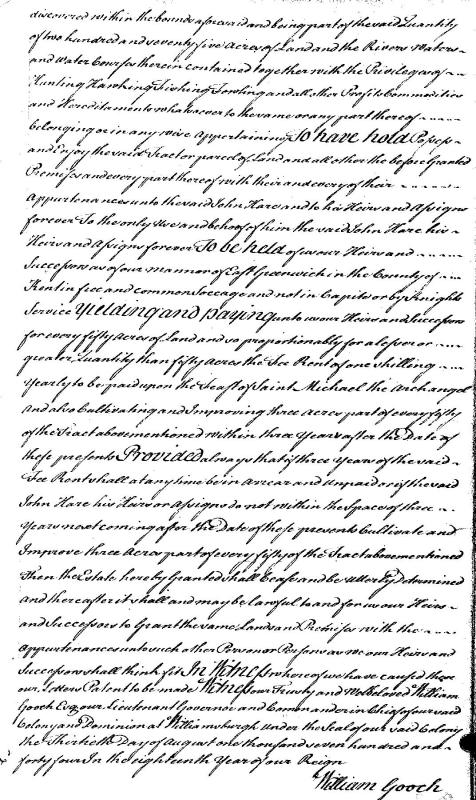 discovered within the bounds aforesaid and being part of the said Quantity
of two hundred and seventy five Acres of Land and the Rivers Waters
and Water Courses therein contained together with the Privileges of
Hunting Hawking Fishing Fowling and all other Profits Commodities
and Hereditaments whatsoever to the same or any part thereof
belonging or in any wise Appertaining To have hold Possess
and Enjoy the said Tract or parcel of Land and all other the before Granted
Premisses and every part thereof with their and every of their
Appurtenances unto the said John Hare and to his Heirs and Assigns
forever To the only Use and behoof of him the said John Hare his
Heirs and Assigns forever To be held of us our Heirs and
Successors as of our mannor of East Greenwich in the County of
Kent in fee and common Soccage and not in Capite or by Knights
Service Yielding and Paying unto us our Heirs and Successors
for every fifty Acres of Land and so proportionably for a lesser or
greater Quantity than fifty Acres the Fee Rent of one shilling
Yearly to be paid upon the Feast of Saint Michael the Archangel
and also Cultivating and Improving three Acres part of every fifty
of the Tract abovementioned within three Years after the Date of
these presents Provided always that if three Years of the said
Fee Rent shall at any time be in Arrear and Unpaid or if the said
John Hare his Heirs or Assigns do not within the Space of three
Years next coming after the Date of these presents Cultivate and
Improve three Acres part of every fifty of the Tract abovementioned
Then the Estate hereby Granted shall Cease and be Utterly Determined
and thereafter it shall and may be lawful to and for us our Heirs
and Successors to Grant the same Lands and Premisses with the
Appurtenances unto such other Person or Persons as we our Heirs and
Successors shall think fit In Witness whereof we have caused these
our Letters Patent to be made Witness our Trusty and Welbeloved William
Gooch Esqr our Lieutenant Governor and Commander in Chief of our said
Colony and Dominion at Williamsburgh Under the Seal of our said Colony
the Thirtieth Day of August one thousand seven hundred and
forty four In the eighteenth Year of our Reign
William Gooch